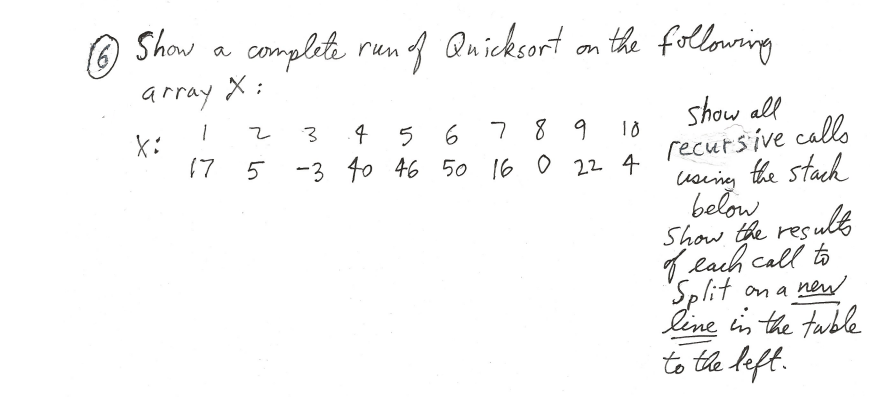 ⑥ Show a complete run of Quicksort on the following
array X:
X: 1 2 3 4 5 6 7 8 9 10
17 5 -3 40 46 50 16 0 22 4
show all
recursive calls
using the stack
below
Show the results
of each call to
Split on a new
line in the table
to the left.